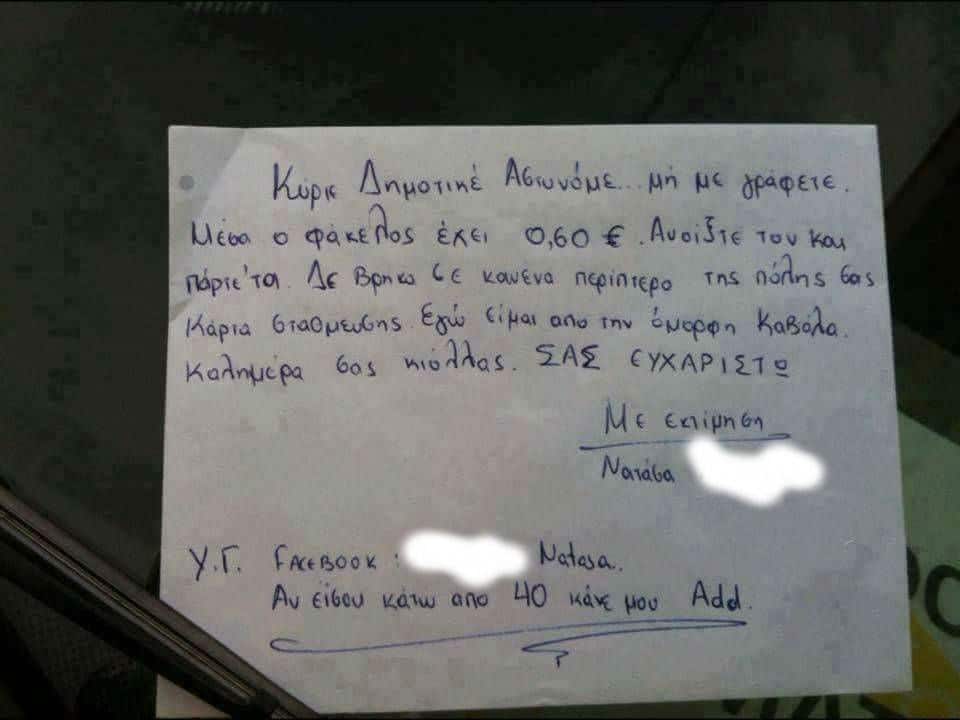 Κύριε Δημοτικέ Αστυνόμε... μή με γράφετε.
Μέσα ο φάκελος έχει 0,60 €. Ανοίξτε τον και
πάρτε'τα. Δε βρήκα σε κανενα περίπτερο της πόλης σας
Κάρτα στάθμευσης. Εγώ είμαι απο την όμορφη Καβάλα.
Καλημέρα σας κιόλλας. ΣΑΣ ΕΥΧΑΡΙΣΤΩ
Με εκτίμηση
Νατάσα
Υ.Γ. FACEBOOK : Natasa.
Αν είσου κάτω απο 40 κάνε μου Add.